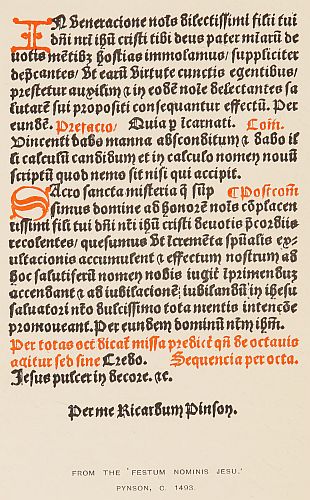 IN veneracione noīs dilectissimi filii tui
dn̄i nr̄i ih̄u cristi tibi deus pater miarū de
uotis mētibꝫ hostias immolamus / suppliciter
dep̄cantes / vt earū virtute cunctis egentibus /
prestetur auxiliū ⁊ in eodē noīe delectantes sa
lutarē sui propositi consequantur effectū. Per
eundē. Prefacio / Quia p̱ īcarnati. Com̄.
Vincenti dabo manna absconditum ⁊ dabo il
li calculū candidum et in calculo nomen nouū
scriptū quod nemo sit nisi qui accipit.
SAcro sancta misteria q̄ sūp ¶ Postcom̄
simus domine ad honorē noīs cōplacen
tissimi filii tui dn̄i nr̄i ih̄u cristi deuotis p̄cordiis
recolentes / quesumus vt īcremēta sp̄ualis ex-
ultacionis accumulent ⁊ effectum nostrum ad
hoc salutiferū nomen nobis iugit̄ īprimenduꝫ
accendant ⁊ ad iubilacionē iubilandū in ihesu
saluatori nr̄o dulcissimo tota mentis intencōe
promoueant. Per eundem dominū nr̄m ih̄m.
Per totas oct̄ dicat̄ missa predict̄ qn̄ de octauis
agitur sed sine Credo. Sequencia per octa.
Jesus pulcer in decore. ⁊c.
Per me Ricardum Pinson.
FROM THE 'FESTUM NOMINIS JESU.'
PYNSON, C. 1493.